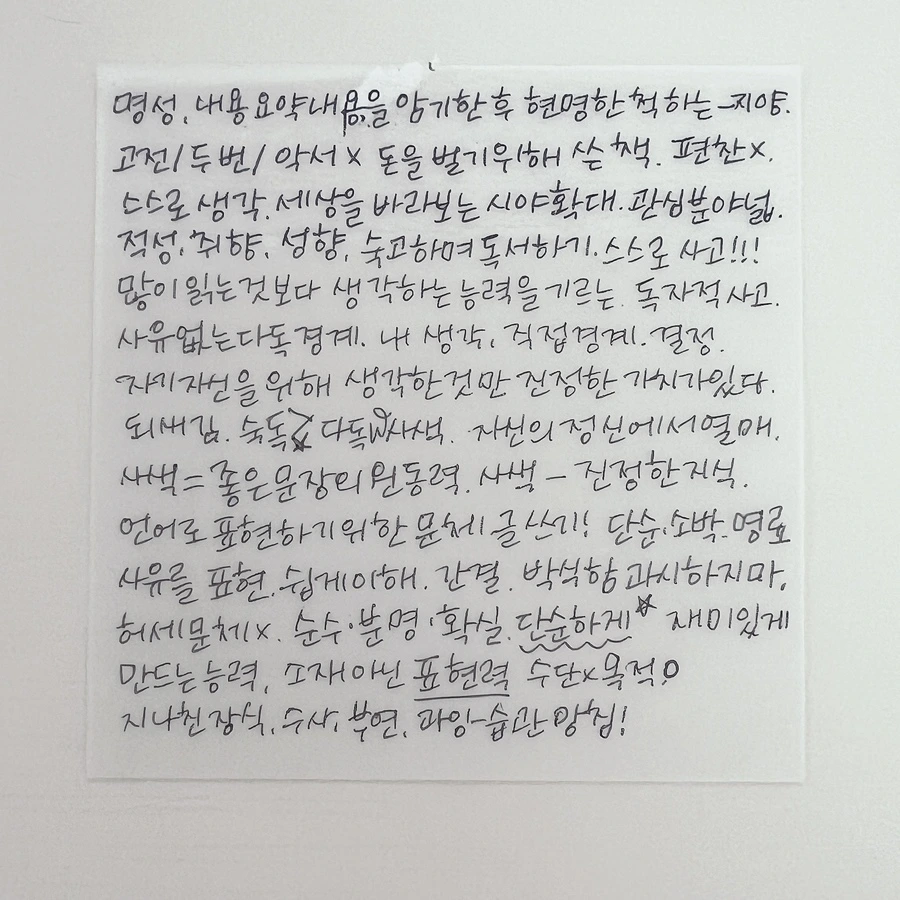 명성, 내용요약내용을 암기한 후 현명한 척 하는 - 지양.
고전/두번/ 악서 x 돈을 벌기위해 쓴 책. 편찬x.
스스로 생각. 세상을 바라보는 시야확대. 관심분야넓.
적성, 취향, 성향, 숙고하며 독서하기. 스스로 사고!!!
많이 읽는것보다 생각하는 능력을 기르는. 독자적사고.
사유없는다독경계. 내 생각, 직접경계. 결정.
자기자신을 위해 생각한것만 진정한 가치가있다.
되새김. 숙독 다독 사색. 자신의 정신에서 열매.
사색=좋은문장의 원동력. 사색 - 진정한지식.
언어로 표현하기위한 문체 글쓰기! 단순, 소박. 명료
사유를 표현. 쉽게이해. 간결. 박식함 과시하지마.
허세문체x. 순수·분명·확실. 단순하게☆ 재미있게
만드는능력, 소재아닌 표현력 수단x목적o
지나친장식, 수사, 부연, 과잉-습관 망침!